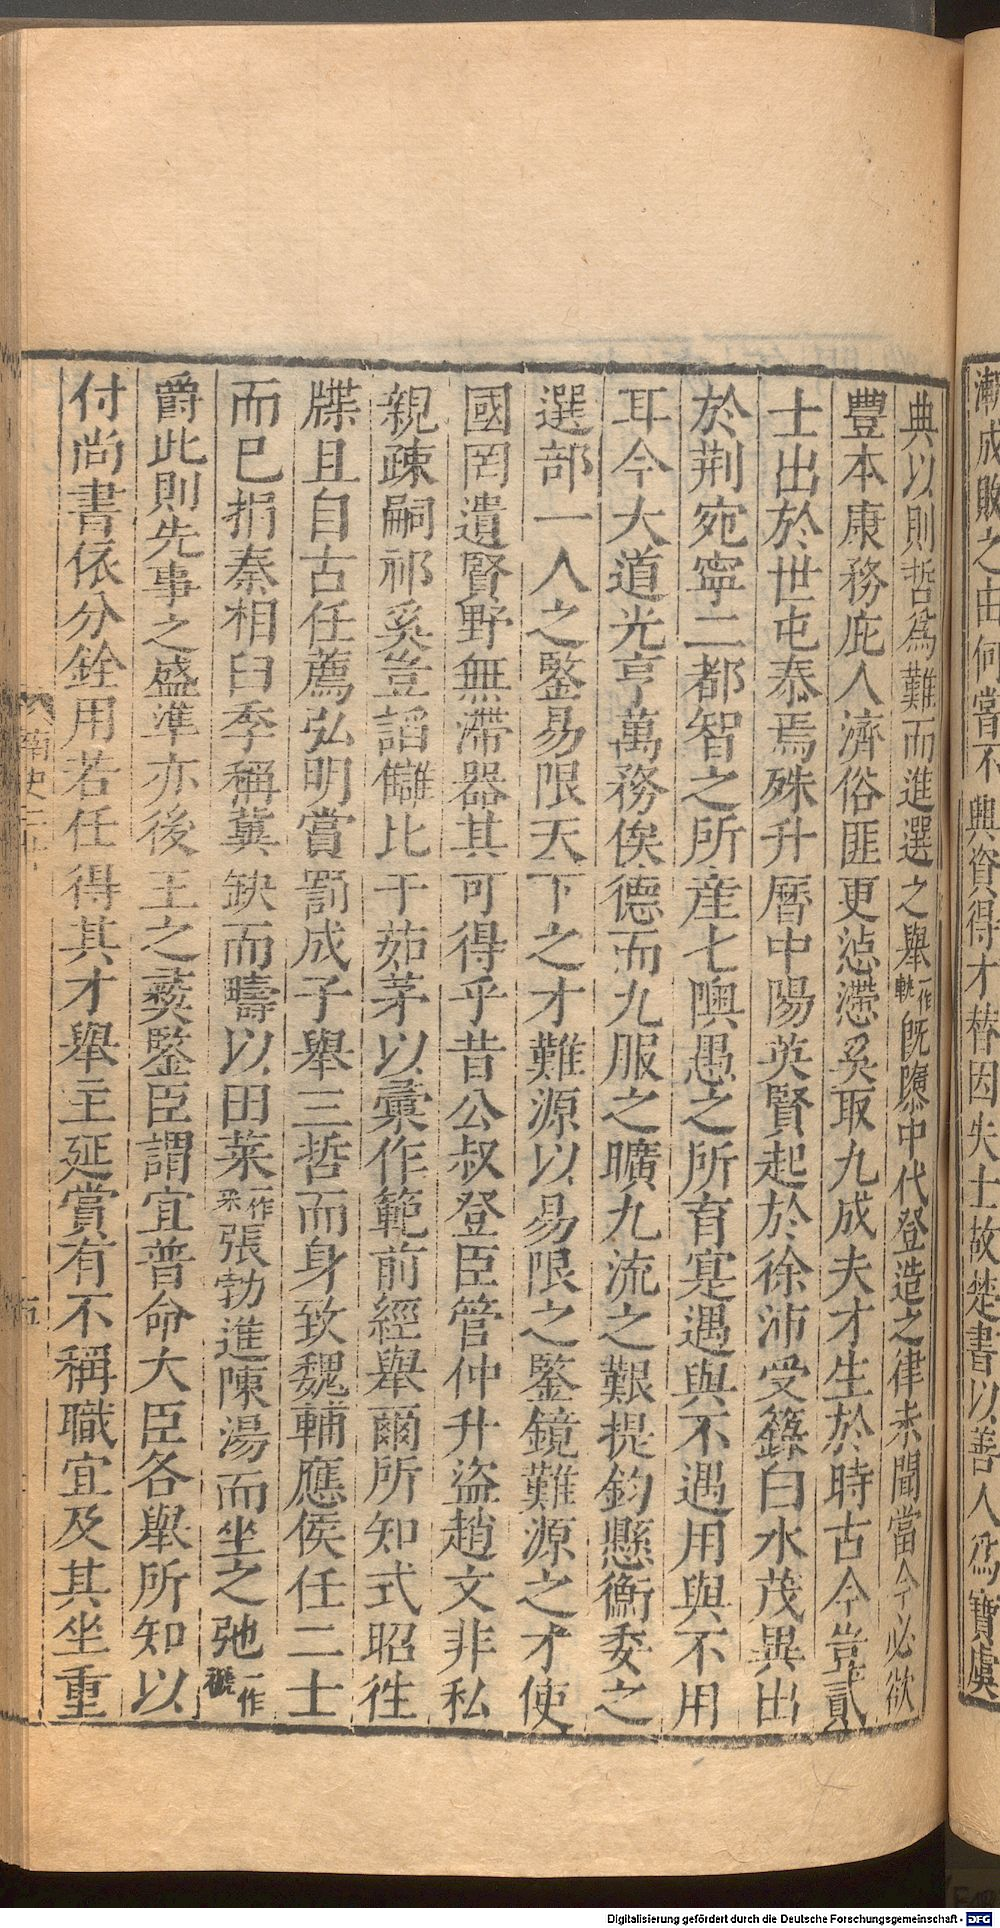 漸成敗之由何嘗不興資得才替因失士故楚書以善人爲寶虞
典以則哲爲難而進選之舉一作軌旣隳中代登造之律未聞當今必欲
豐本康務庇人濟俗匪更惉懘奚取九成夫才生於時古今豈貳
士出於世屯泰焉殊升曆中陽英賢起於徐沛受籙白水茂異出
於荆宛寧二都智之所産七隩愚之所育寔遇與不遇用與不用
耳今大道光亨萬務俟德而九服之曠九流之艱提鈞懸衡委之
選部一人之鑒易限天下之才難源以易限之鑒鏡難源之才使
國罔遺賢野無滯器其可得乎昔公叔登臣管仲升盜趙文非私
親疎嗣祁奚豈諂讎比干茹茅以彙作範前經舉爾所知式昭徃
牒且自古任薦弘明賞罰成子舉三哲而身致魏輔應侯任二士
而已捐秦相臼季稱冀缺而疇以田萊一作采張勃進陳湯而坐之弛一作褫
爵此則先事之盛準亦後王之彜鑒臣謂宜普命大臣各舉所知以
付尚書依分銓用若任得其才舉主延賞有不稱職宜及其坐重
五
Digitalisierung gefördert durch die Deutsche Forschungsgemeinschaft - DFG